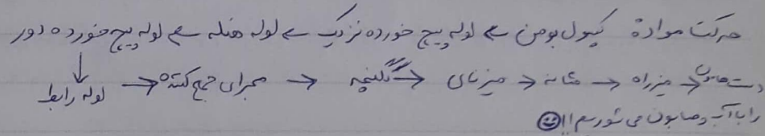 حرکت مواد: کپسول بومن ← لوله پیچ خورده نزدیک ← لوله هنله ← لوله پیچ خورده دور
↓
لوله رابط ← مجرای جمع کننده ← لگنچه ← میزنای ← مثانه ← میزراه ← دست هامون
را با آب و صابون می شوریم!! ☺